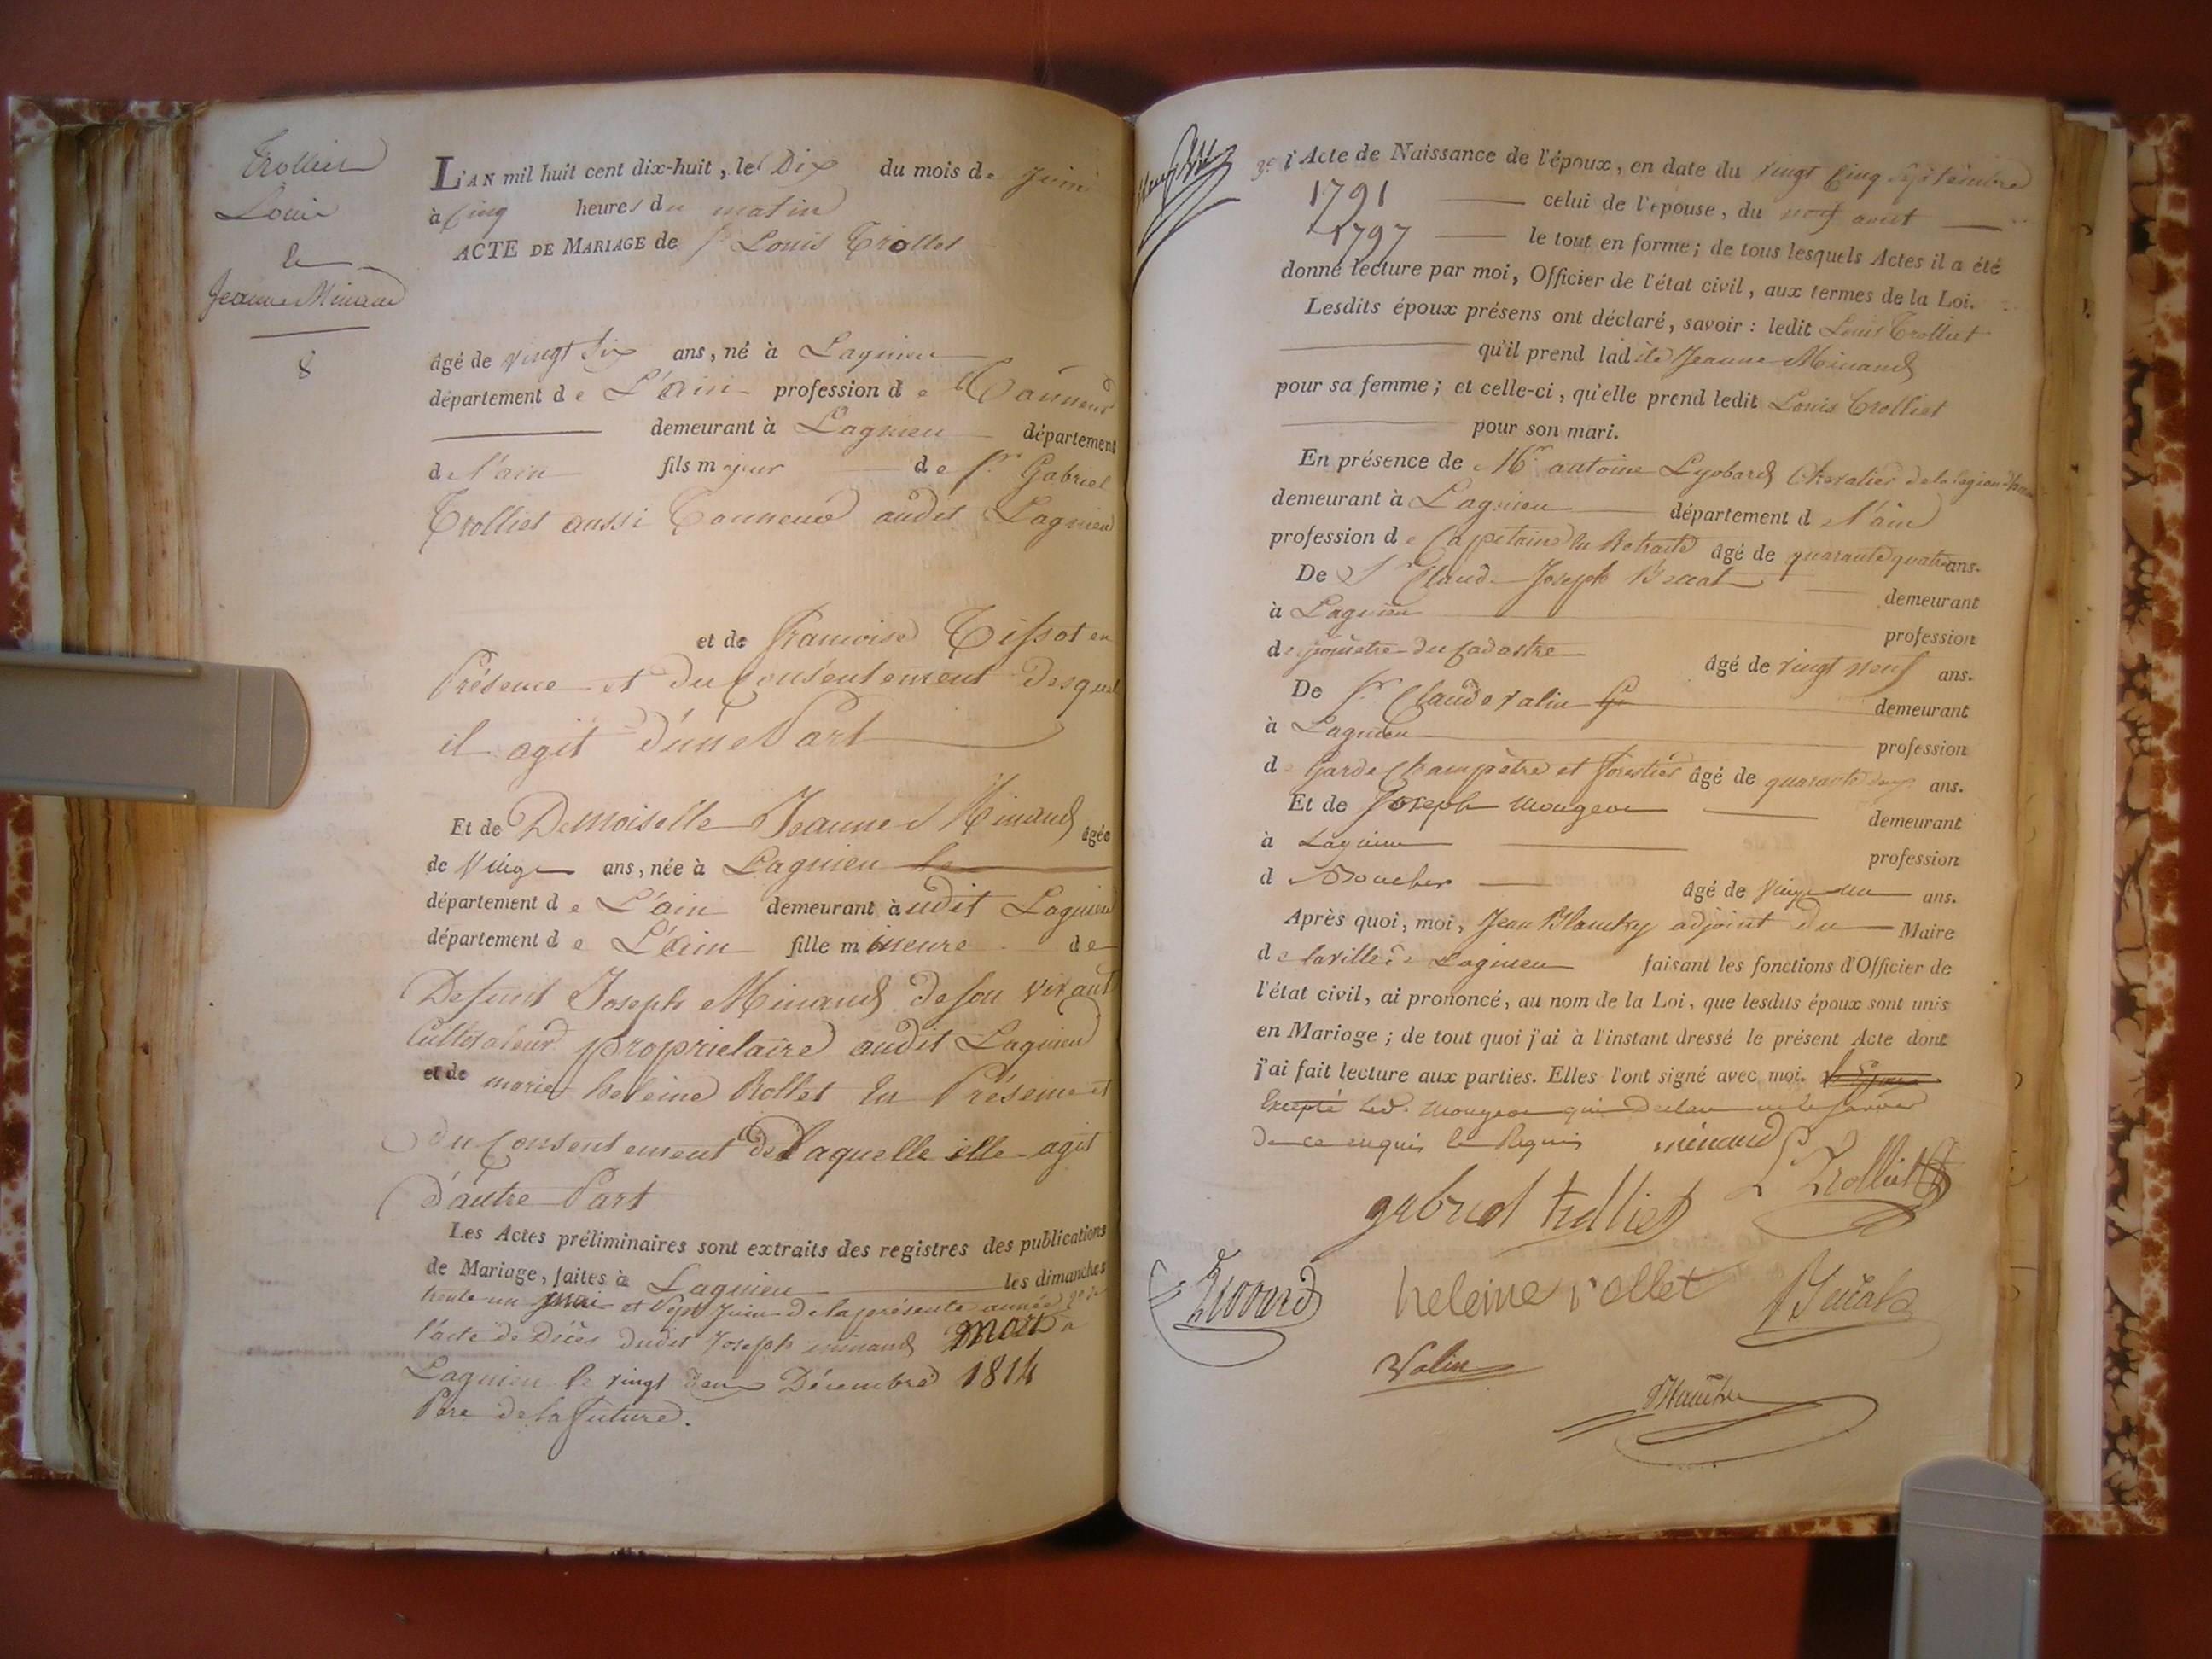 Trolliet
Louis
&
Jeanne Minand
8
L'AN mil huit cent dix-huit, le Dix du mois de Juin
à Cinq heures du matin
ACTE DE MARIAGE de Sr Louis Trolliet
âgé de vingt six ans, né à Lagnieu
département de L'ain profession de Tanneur
demeurant à Lagnieu département
de l'ain fils majeur de Sr Gabriel
Trolliet aussi Tanneur audit Lagnieu
et de Francoise Tissot en
Présence et du Consentement desquels
il agit d'une Part
Et de Demoiselle Jeanne Minand âgée
de Vingt ans, née à Lagnieu
département de L'ain demeurant audit Lagnieu
département de L'ain fille mineure de
Defunt Joseph Minand de son vivant
Cultivateur propriétaire audit Lagnieu
et de marie heleine Rollet En Présence et
du Consentement de Laquelle elle agit
d'autre Part
Les Actes préliminaires sont extraits des registres des publications
de Mariage, faites à Lagnieu les dimanches
trente un mai et Sept Juin de la présente année 2° de
l'acte de Décès dudit Joseph minand mort a
Lagnieu le vingt deux Décembre 1814
Père de la future.
3° l'Acte de Naissance de l'époux, en date du vingt Cinq Septembre
1791 celui de l'épouse, du neuf aout
1797 le tout en forme; de tous lesquels Actes il a été
donné lecture par moi, Officier de l'état civil, aux termes de la Loi.
Lesdits époux présens ont déclaré, savoir: ledit Louis Trolliet
qu'il prend ladite Jeanne Minand
pour sa femme; et celle-ci, qu'elle prend ledit Louis Trolliet
pour son mari.
En présence de Mr antoine Lyobard Chevalier de la légion d'honneur
demeurant à Lagnieu département de l'ain
profession de Capitaine en Retraite âgé de quarante quatre ans.
De Sr Claude Joseph Bucat demeurant
à Lagnieu profession
de géomètre du Cadastre âgé de vingt neuf ans.
De Sr Claude Valin demeurant
à Lagnieu profession
de Garde Champêtre et forestier âgé de quarante deux ans.
Et de Joseph Mougeon demeurant
à Lagnieu profession
d Boucher âgé de vingt un ans.
Après quoi, moi, Jean Blanchy adjoint du Maire
de la ville de Lagnieu faisant les fonctions d'Officier de
l'état civil, ai prononcé, au nom de la Loi, que lesdits époux sont unis
en Mariage; de tout quoi j'ai à l'instant dressé le présent Acte dont
j'ai fait lecture aux parties. Elles l'ont signé avec moi.
Excepté led. Mougeon qui a declaré ne le savoir
de ce enquis et Requis minand
L Trolliet
gabriel trolliet
heleine rollet
Valin